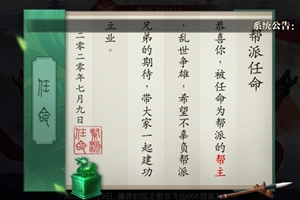 系统公告:
帮派任命
恭喜你,被任命为帮派的帮主
,乱世争雄,希望不辜负帮派
兄弟的期待,带大家一起建功
立业。
二零二零年七月九日
任命